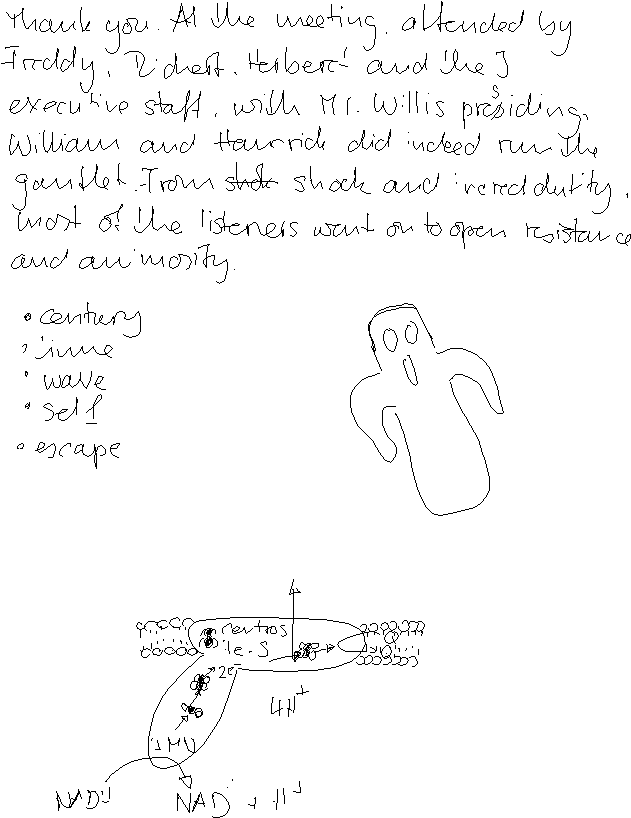 Thank you. At the meeting, attended by
Freddy, Richert, Herbert and the 3
executive staff, with Mr. Willis presiding,
William and Hamrick did indeed run the
gauntlet. From shock and incredulity,
most of the listeners went on to open resistance
and animosity.
• century
• wave
• self
• escape
2e-
4H+
NAD + H+